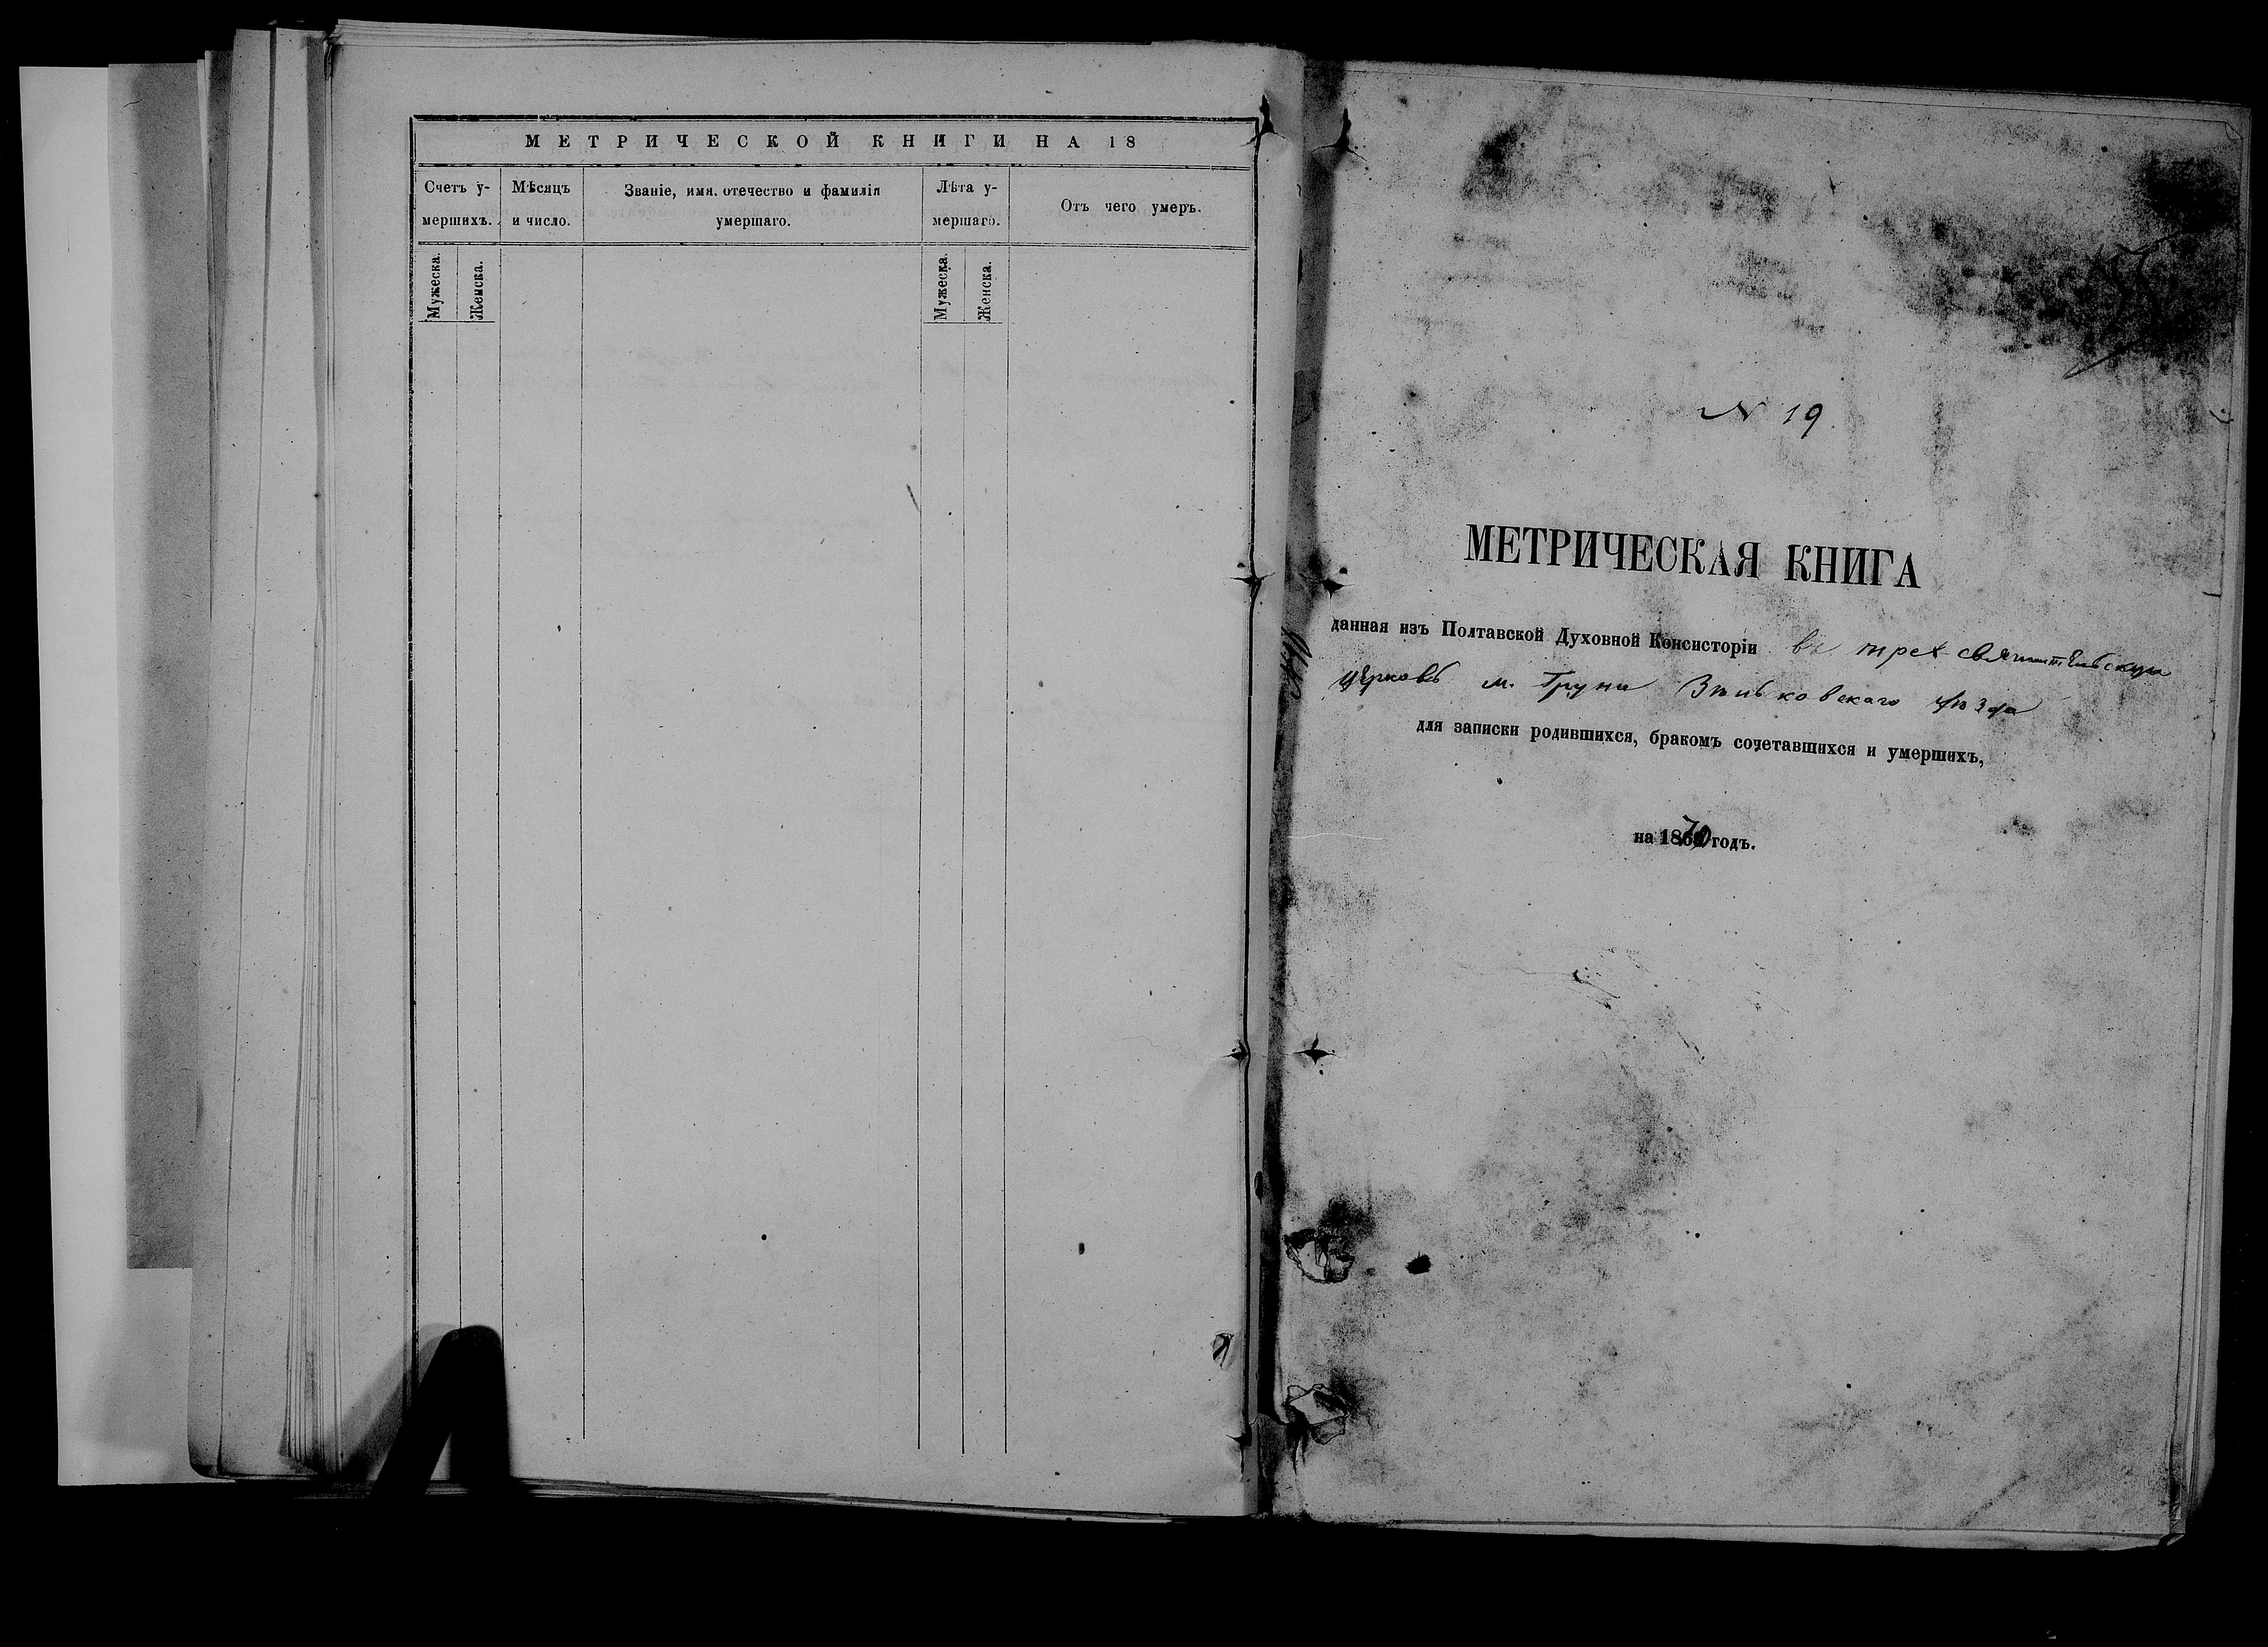 МЕТРИЧЕСКОЙ КНИГИ НА 18
Счетъ у-
мершихъ.
Мѣсяцъ
и число.
Званіе, имя. отечество и фамилія
умершаго.
Лѣта у-
мершаго.
Отъ чего умеръ.
Мужеска.
Женска.
Мужеска.
Женска.
N 19
МЕТРИЧЕСКАЯ КНИГА
данная изъ Полтавской Духовной Консисторіи въ трех-святительскую
церковь м. Груни Зѣньковскаго уѣзда
для записки родившихся, бракомъ сочетавшихся и умершихъ,
на 1870 годъ.